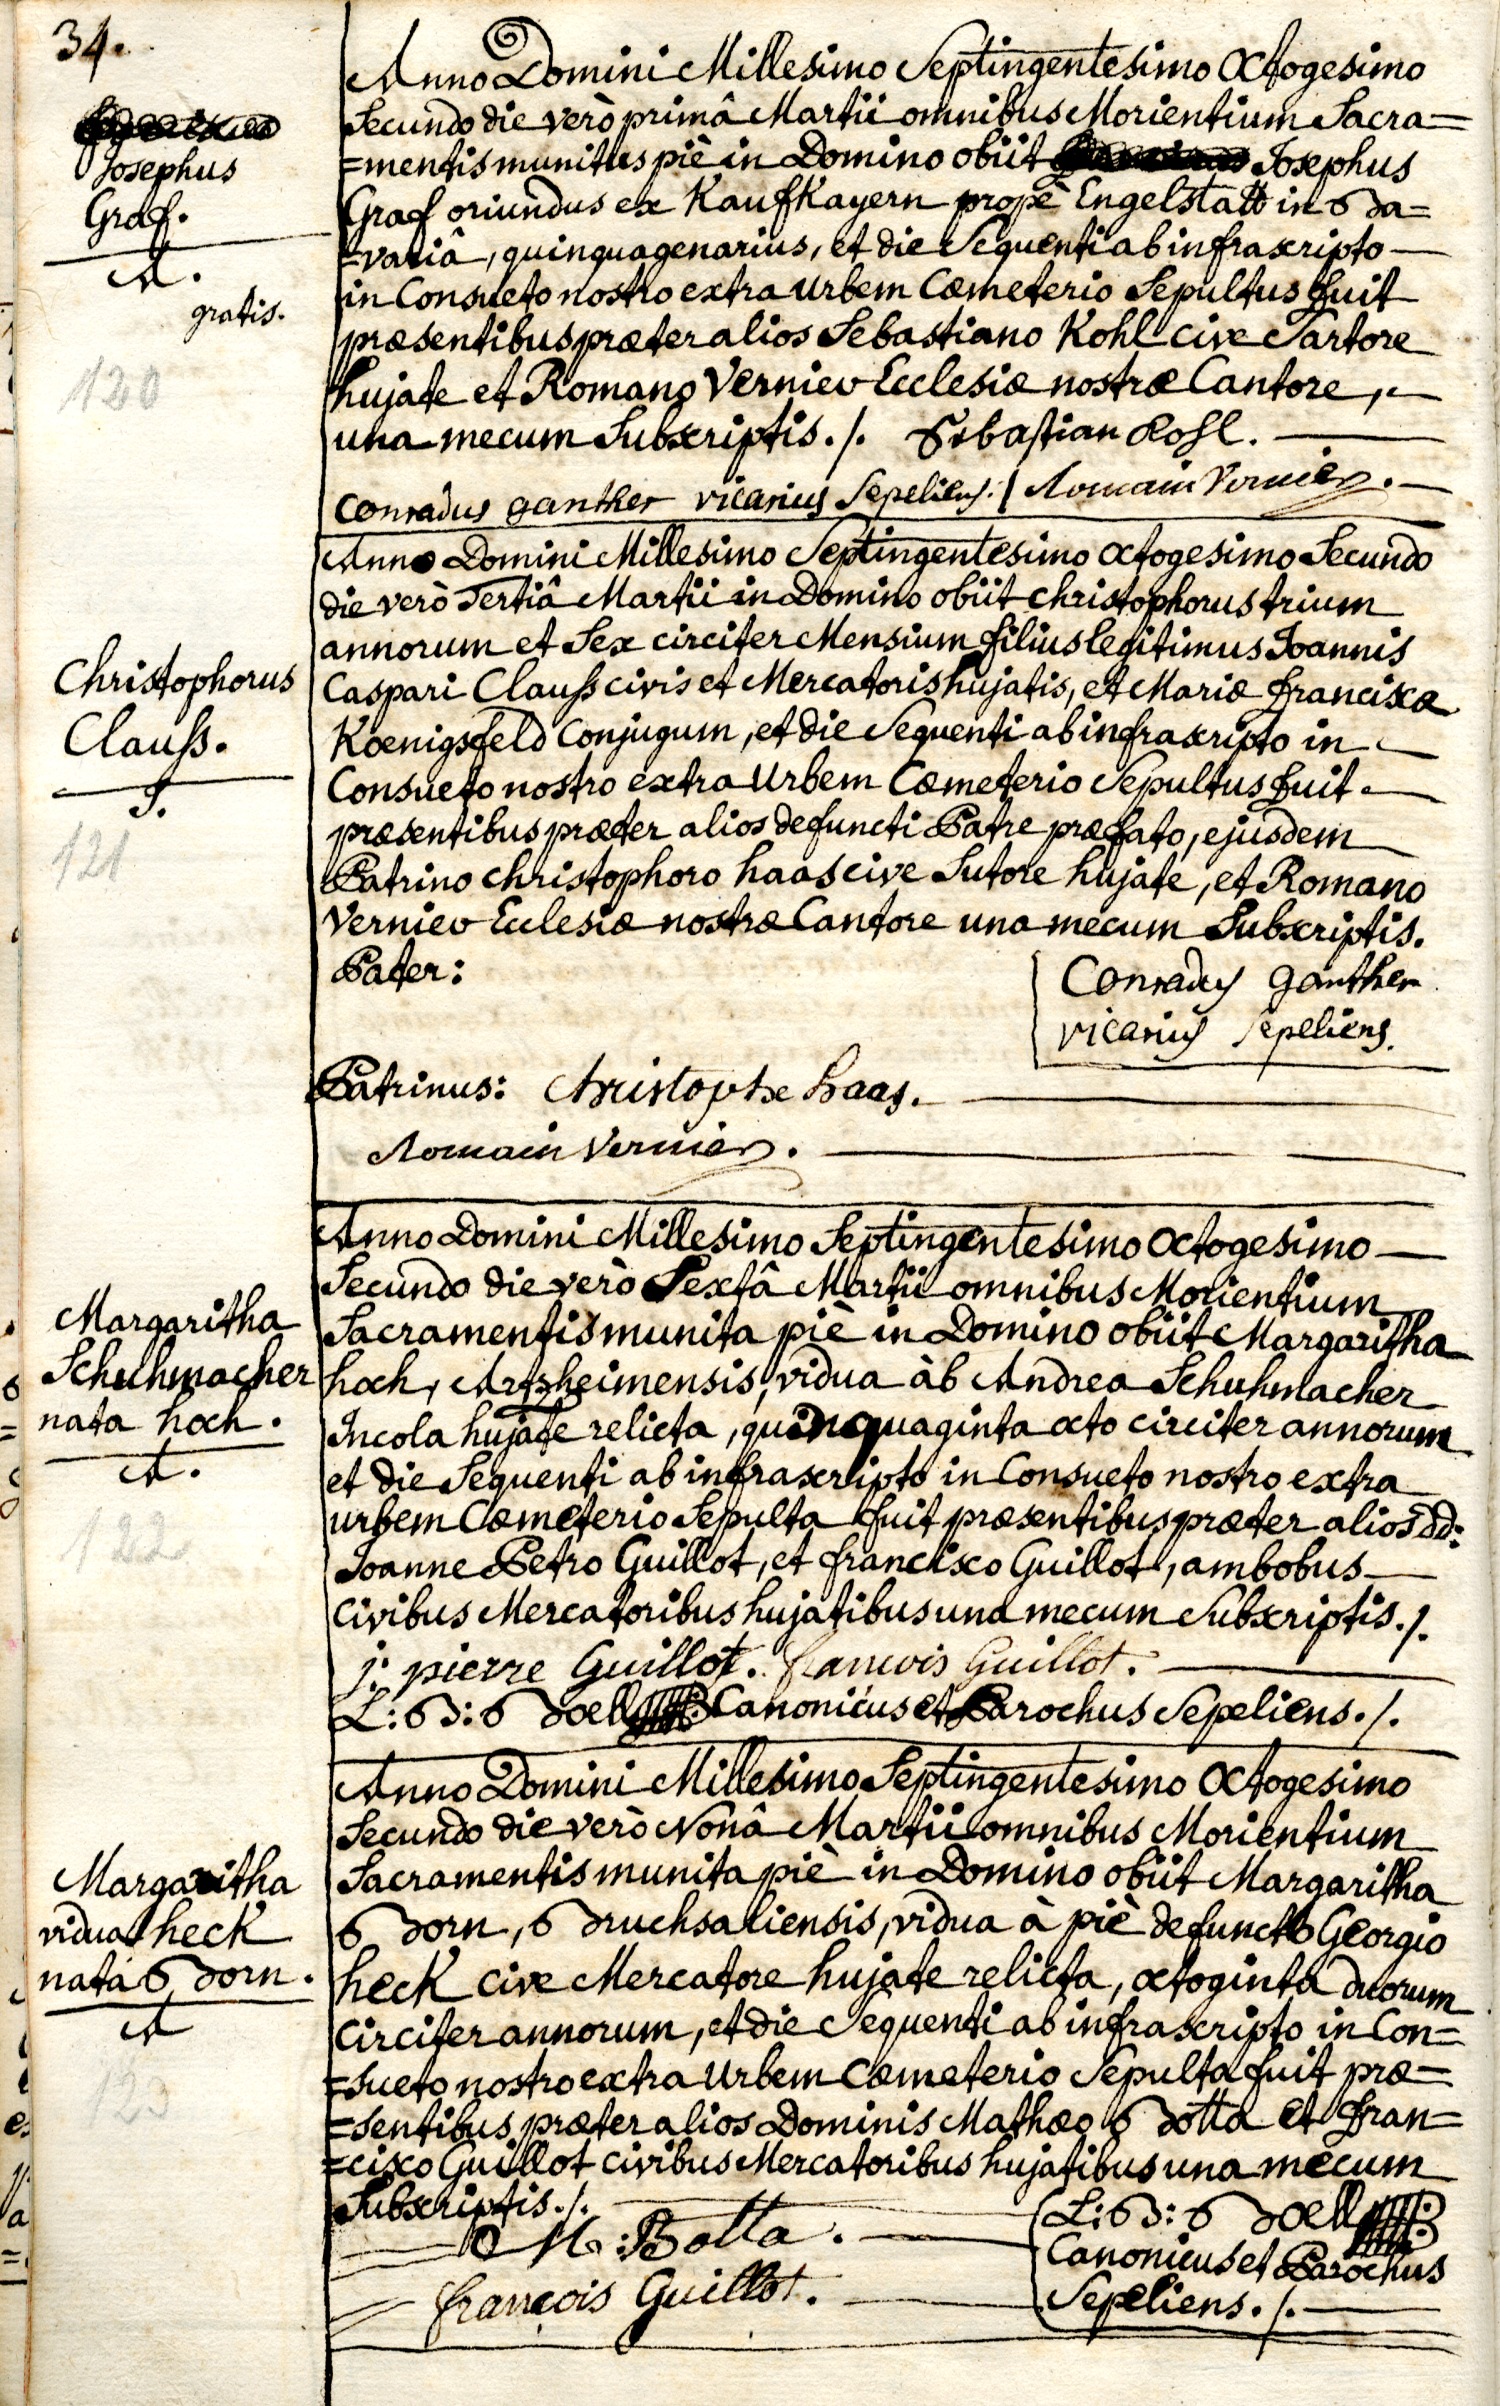 34.
Josephus
Graf.
A.
gratis.
120
Anno Domini Millesimo Septingentesimo Octogesimo
Secundo die verò primâ Martii omnibus Morientium Sacra=
=mentis munitus piè in Domino obiit Josephus
Graf oriundus ex Kaufkayern propè Engelstatt in Ba=
=variâ, quinquagenarius, et die Sequenti ab infrascripto
in Consueto nostro extra urbem Cœmeterio Sepultus fuit
præsentibus præter alios Sebastiano Kohl cive Sartore
hujate et Romano Vernier Ecclesiæ nostræ Cantore,
una mecum Subscriptis./. Sebastian Kohl.
Conradus ganther vicarius Sepeliens. Romain Vernier.
Christophorus
Clauss.
I.
121
Anno Domini Millesimo Septingentesimo Octogesimo Secundo
die verò Tertiâ Martii in Domino obiit Christophorus trium
annorum et Sex circiter Mensium filius legitimus Joannis
Caspari Clauss civis et Mercatoris hujatis, et Mariæ franciscæ
Koenigsfeld Conjugum, et die Sequenti ab infrascripto in
Consueto nostro extra Urbem Cœmeterio Sepultus fuit
præsentibus præter alios defuncti Patre præfato, ejusdem
Patrino Christophoro haas cive Sutore hujate, et Romano
Vernier Ecclesiæ nostræ Cantore una mecum Subscriptis.
Pater:
Conradus ganther
vicarius Sepeliens.
Patrinus: Christophe haas.
Romain Vernier.
Margaritha
Schuhmacher
nata hoch.
A.
122
Anno Domini Millesimo Septingentesimo Octogesimo
Secundo die verò Sextâ Martii omnibus Morientium
Sacramentis munita piè in Domino obiit Margaritha
hoch, Artzheimensis, vidua àb Andrea Schuhmacher
Incola hujate relicta, quinquaginta octo circiter annorum
et die Sequenti ab infrascripto in Consueto nostro extra
urbem Cœmeterio Sepulta fuit præsentibus præter alios dd:
Joanne Petro Guillot, et francisco Guillot, ambobus
Civibus Mercatoribus hujatibus una mecum Subscriptis./.
j: pierre Guillot. françois Guillot.
L: B: Boell Canonicus et Parochus Sepeliens./.
Margaritha
vidua heck
nata Born.
A
123
Anno Domini Millesimo Septingentesimo Octogesimo
Secundo die verò Nonâ Martii omnibus Morientium
Sacramentis munita piè in Domino obiit Margaritha
Born, Bruchsaliensis, vidua à piè defuncto Georgio
heck cive Mercatore hujate relicta, octoginta duorum
circiter annorum, et die Sequenti ab infrascripto in Con=
=sueto nostro extra Urbem Cœmeterio Sepulta fuit præ=
=sentibus præter alios Dominis Mathæo Botta et fran=
=cisco Guillot civibus Mercatoribus hujatibus una mecum
Subscriptis./.
M: Botta.
françois Guillot.
L: B: Boell
Canonicus et Parochus
Sepeliens./.